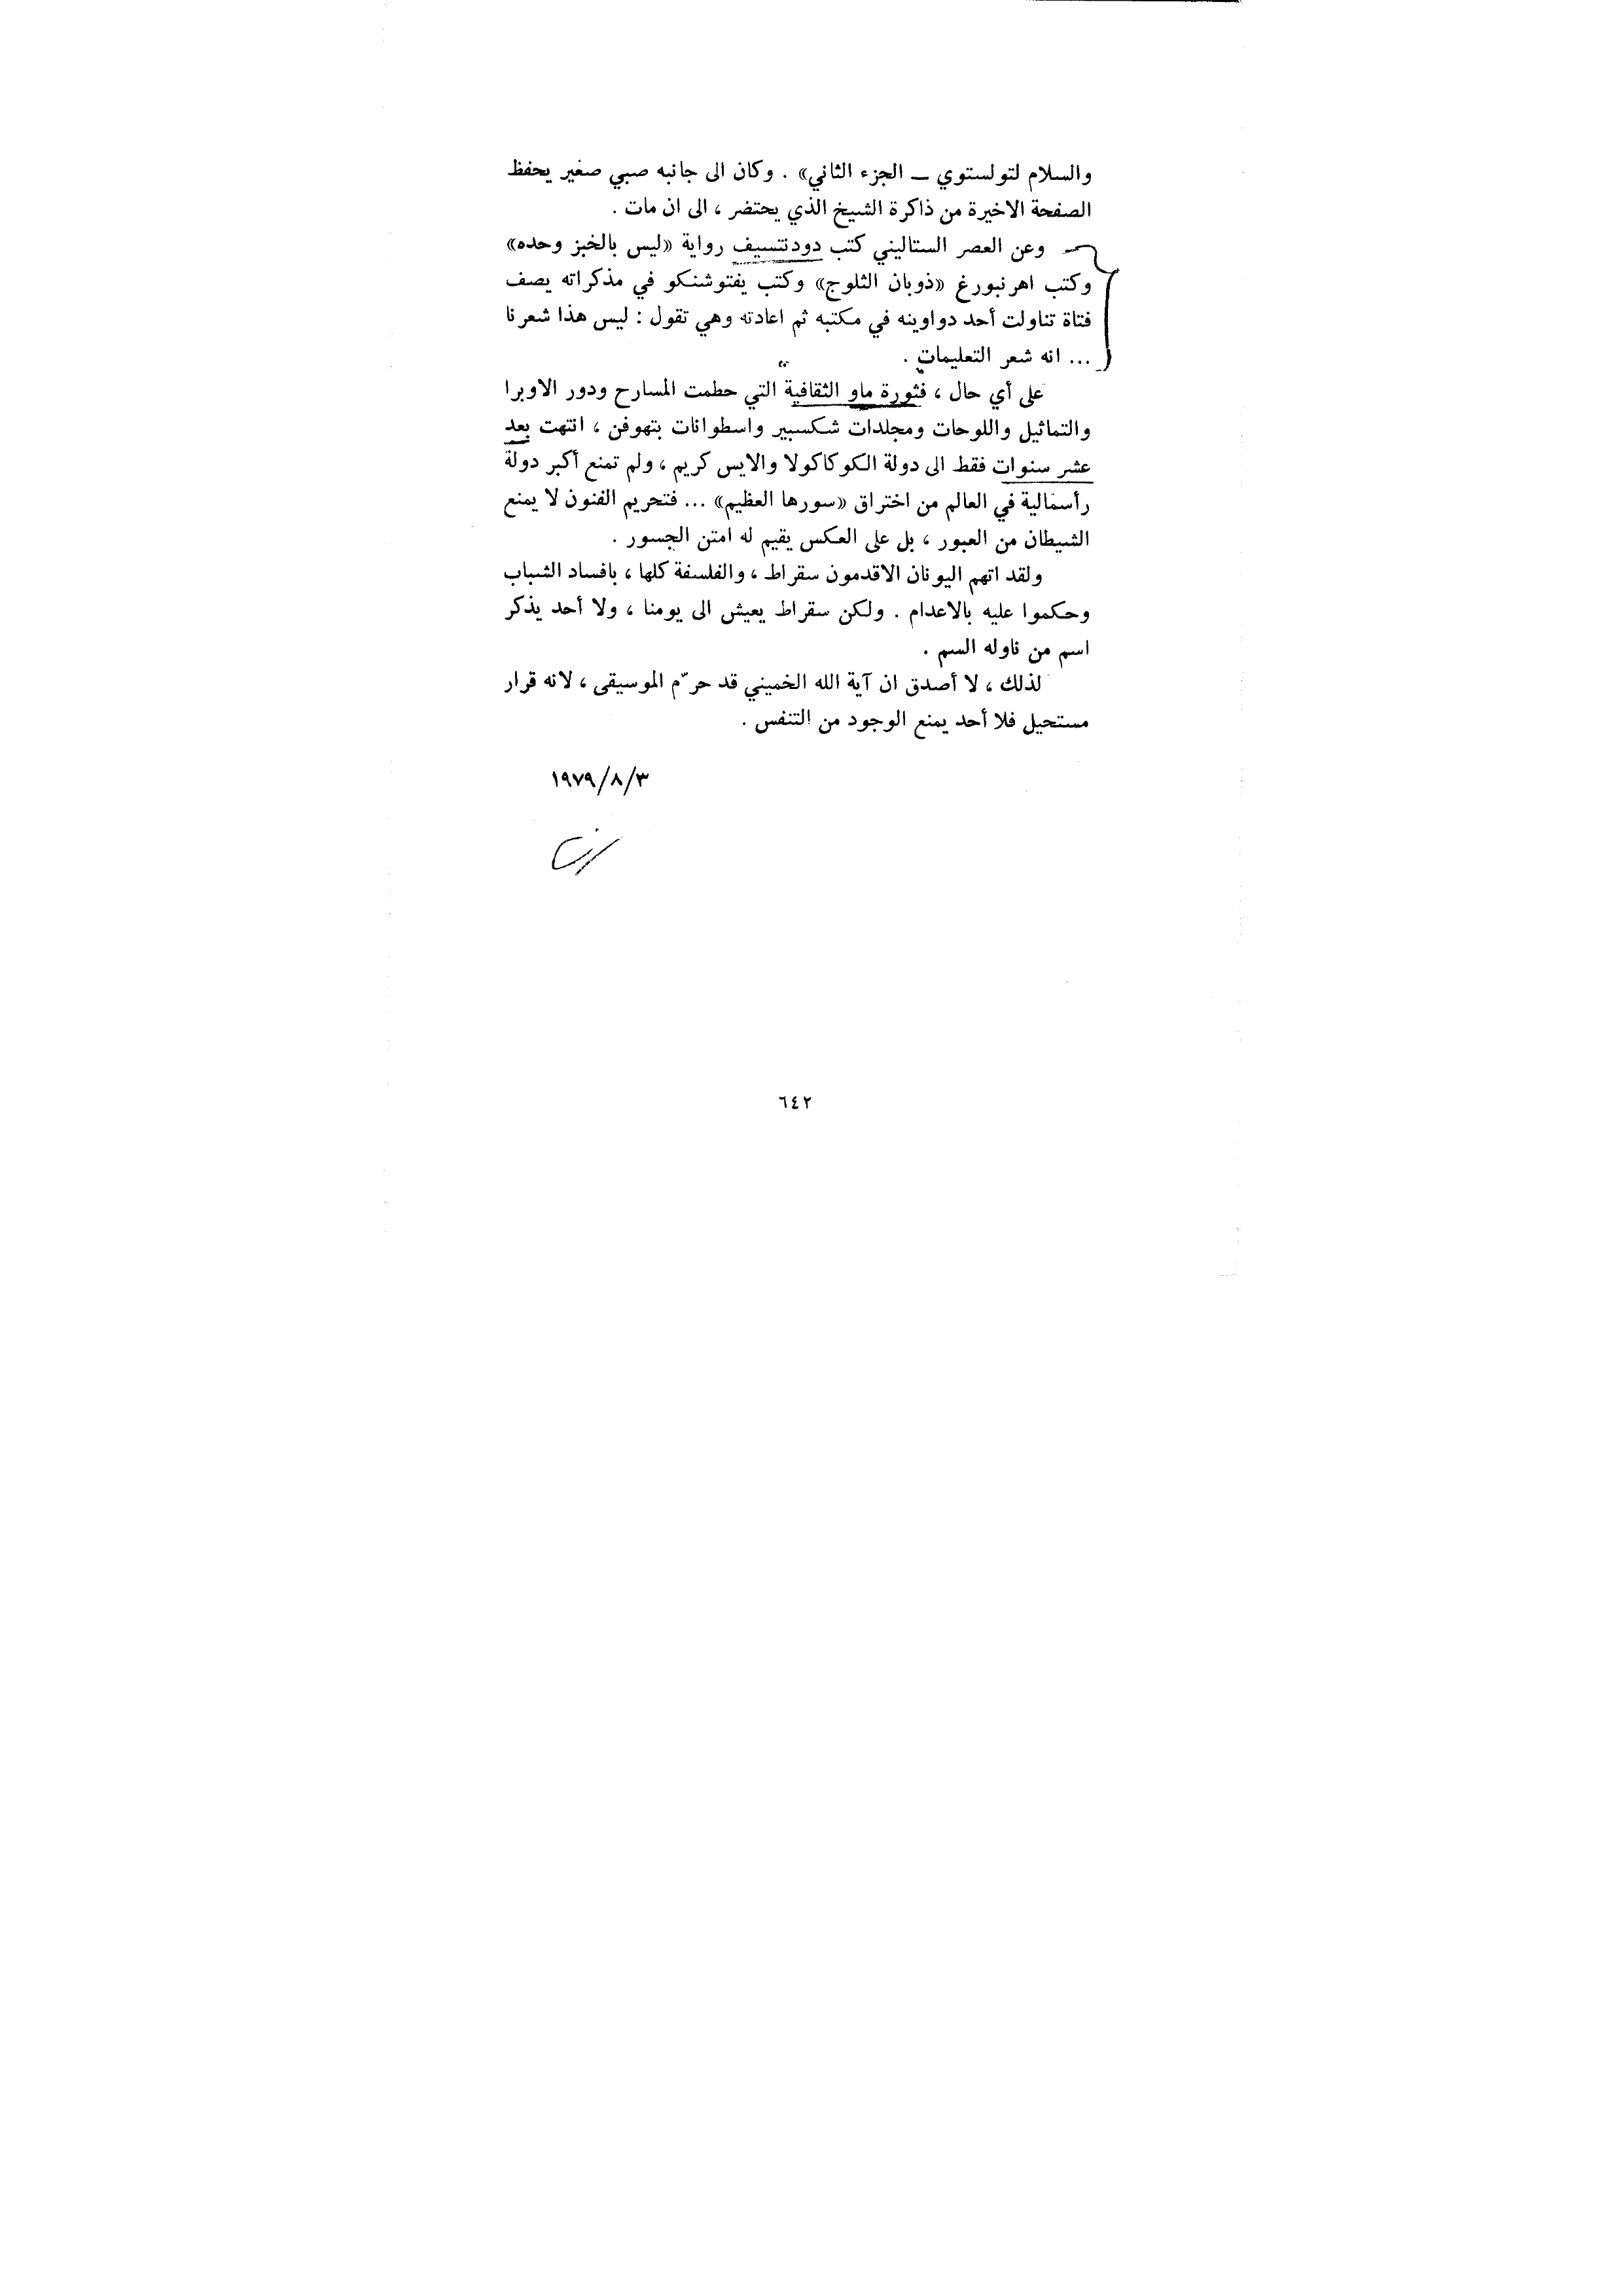 والسلام لتولستوي ــ الجزء الثاني» . وكان الى جانبه صبي صغير يحفظ
الصفحة الاخيرة من ذاكرة الشيخ الذي يحتضر ، الى ان مات .
وعن العصر الستاليني كتب دودنتسيف رواية «ليس بالخبز وحده»
وكتب اهرنبورغ «ذوبان الثلوج» وكتب يفتوشنكو في مذكراته يصف
فتاة تناولت أحد دواوينه في مكتبه ثم اعادته وهي تقول : ليس هذا شعرنا
... انه شعر التعليمات .
على أي حال ، فثورة ماو الثقافية التي حطمت المسارح ودور الاوبرا
والتماثيل واللوحات ومجلدات شكسبير واسطوانات بتهوفن ، انتهت بعد
عشر سنوات فقط الى دولة الكوكاكولا والايس كريم ، ولم تمنع أكبر دولة
رأسمالية في العالم من اختراق «سورها العظيم» ... فتحريم الفنون لا يمنع
الشيطان من العبور ، بل على العكس يقيم له امتن الجسور .
ولقد اتهم اليونان الاقدمون سقراط ، والفلسفة كلها ، بافساد الشباب
وحكموا عليه بالاعدام . ولكن سقراط يعيش الى يومنا ، ولا أحد يذكر
اسم من ناوله السم .
لذلك ، لا أصدق ان آية الله الخميني قد حرّم الموسيقى ، لانه قرار
مستحيل فلا أحد يمنع الوجود من التنفس .
١٩٧٩/٨/٣
٦٤٢